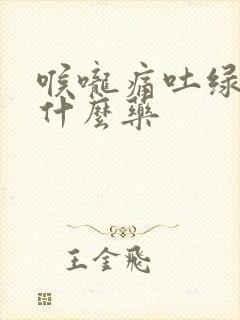 喉嚨痛吐绿
什麼藥
王金飛